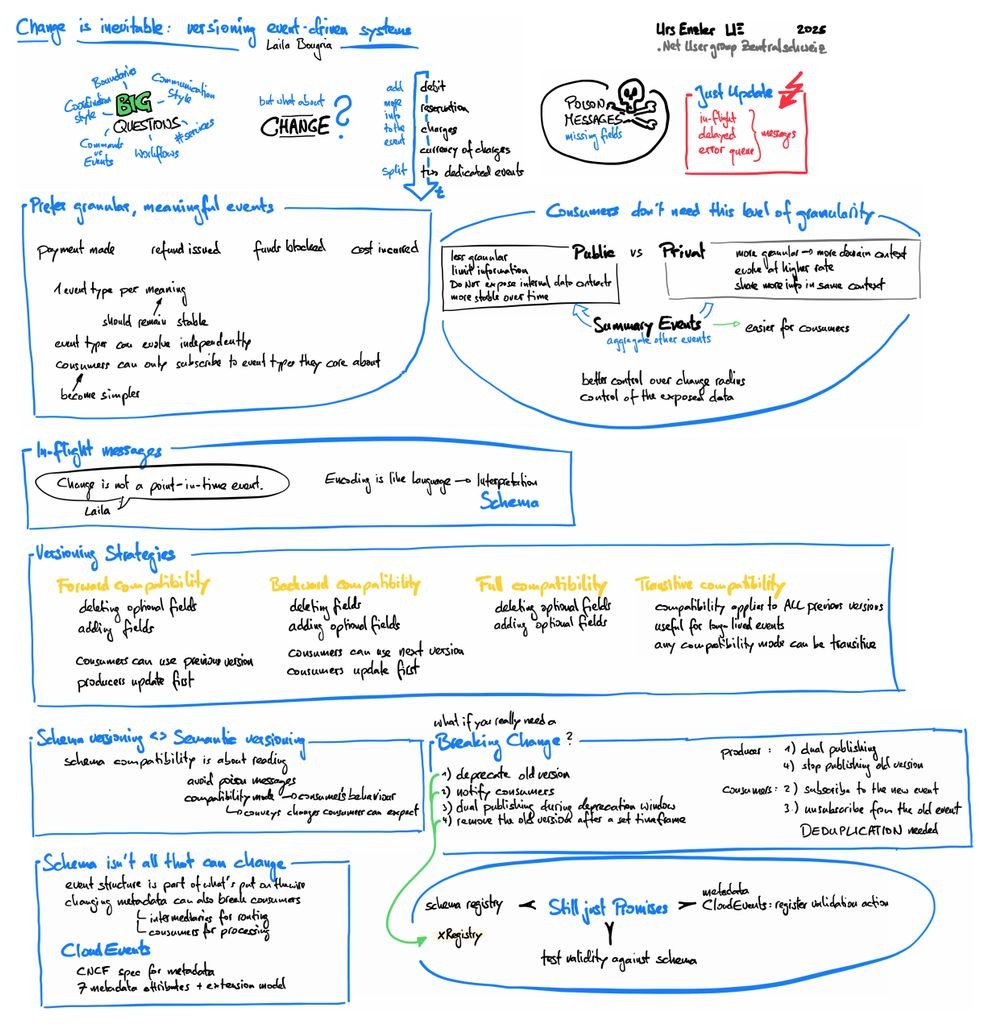 Change is inevitable: versioning event-driven systems
Laila Bougria
Urs Enzler UE 2025
.Net Usergroup Zentralschweiz
Boundaries
Communication Style
Coordination style
BIG
QUESTIONS
#services
Commands vs Events
Workflows
but what about
CHANGE ?
add more info to the event
split
debit
reservation
charges
currency of charges
two dedicated events
t
POISON
MESSAGES
missing fields
Just Update
in-flight
delayed
error queue
messages
Prefer granular, meaningful events
payment made refund issued funds blocked cost incurred
1 event type per meaning
should remain stable
event types can evolve independently
consumers can only subscribe to event types they care about
become simpler
Consumers don't need this level of granularity
Public vs Privat
less granular
limit information
Do NOT expose internal data contracts
more stable over time
more granular → more domain context
evolve at higher rate
share more info in same context
Summary Events → easier for consumers
aggregate other events
better control over change radius
control of the exposed data
In-flight messages
Change is not a point-in-time event.
Laila
Encoding is like language → Interpretation
Schema
Versioning Strategies
Forward compatibility
deleting optional fields
adding fields
consumers can use previous version
producers update first
Backward compatibility
deleting fields
adding optional fields
consumers can use next version
consumers update first
Full compatibility
deleting optional fields
adding optional fields
Transitive compatibility
compatibility applies to ALL previous versions
useful for long-lived events
any compatibility mode can be transitive
Schema versioning <> Semantic versioning
schema compatibility is about reading
avoid poison messages
compatibility mode → consumer's behaviour
conveys changes consumers can expect
what if you really need a
Breaking Change?
1) deprecate old version
2) notify consumers
3) dual publishing during deprecation window
4) remove the old version after a set timeframe
producer: 1) dual publishing
4) stop publishing old version
consumers: 2) subscribe to the new event
3) unsubscribe from the old event
DEDUPLICATION needed
Schema isn't all that can change
event structure is part of what's put on the wire
changing metadata can also break consumers
intermediaries for routing
consumers for processing
CloudEvents
CNCF spec for metadata
7 metadata attributes + extension model
schema registry
xRegistry
Still just Promises
metadata
CloudEvents: register validation action
test validity against schema